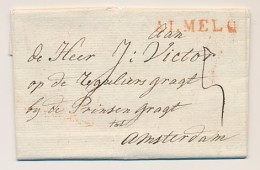 Aan
ALMELO
de Heer J: Victor
op de Reguliers gragt
bij de Prinsen gragt
tot
Amsterdam